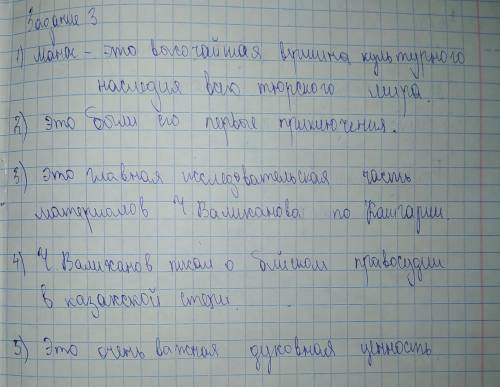 Задание 3
1) Манас – это высочайшая вершина культурного
наследия всего тюрского мира.
2) Это были его первые приключения.
3) Это главная исследовательская часть
материалов Ч Валиханова по Кашгарии.
4) Ч Валиханов писал о бийском правосудии
в казахской степи.
5) Это очень важная духовная ценность